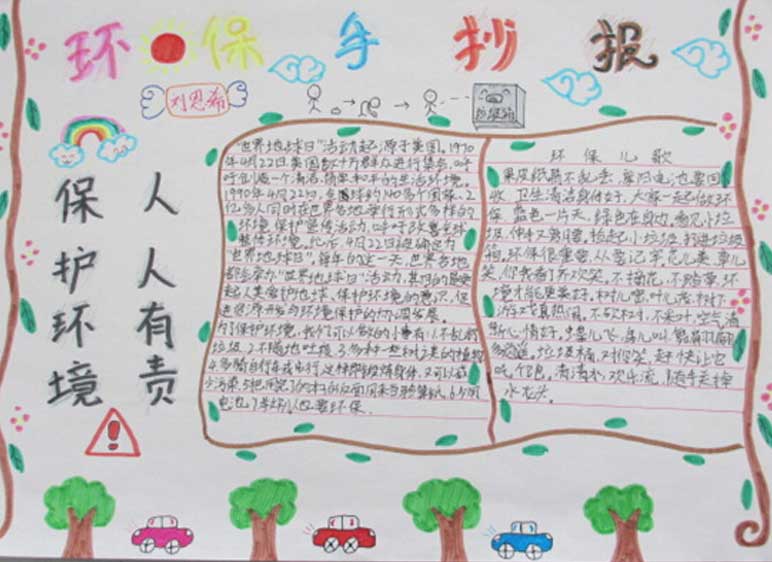 环保手抄报
刘思希
垃圾箱
保护环境
人人有责
"世界地球日"活动起源于美国。1970
年4月22日,美国数十万群众进行集会,呼
吁创造一个清洁、简单和平的生活环境。
1990年4月22日,全球的140多个国家、2
亿多人同时在世界各地举行形式多样的
环境保护宣传活动,呼吁改善全球
整体环境。此后,4月22日被确定为
"世界地球日"。每年的这一天,世界各地
都会举办"世界地球日"活动,其目的是
起人类爱护地球、保护环境的意识,促
进资源开发与环境保护的协调发展。
为了保护环境,我们可以做的小事有:1.不乱扔
垃圾 2.不随地吐痰 3.多种一些
4.多骑自行车或步行,这样即锻炼身体,又可以减
少污染 5.把用完了的本的反面用来当验算纸。6.
电池 7.
环保儿歌
果皮纸屑不乱丢,废旧电池要回
收。卫生清洁身体好,大家一起做环
保。蓝色一片天,绿色在身边,看见小垃
圾,伸手又弯腰。捡起小垃圾,扔进垃圾
箱,环保很重要,从
笑,你我看了齐欢笑,不摘花,不踏草,环
境才能更美好。树儿
游戏真热闹。不砍树,不采叶,空气清
新心情好。
垃圾桶,对你笑,赶快让它
吃个饱,清清水,欢乐流,随手关掉
水龙头。